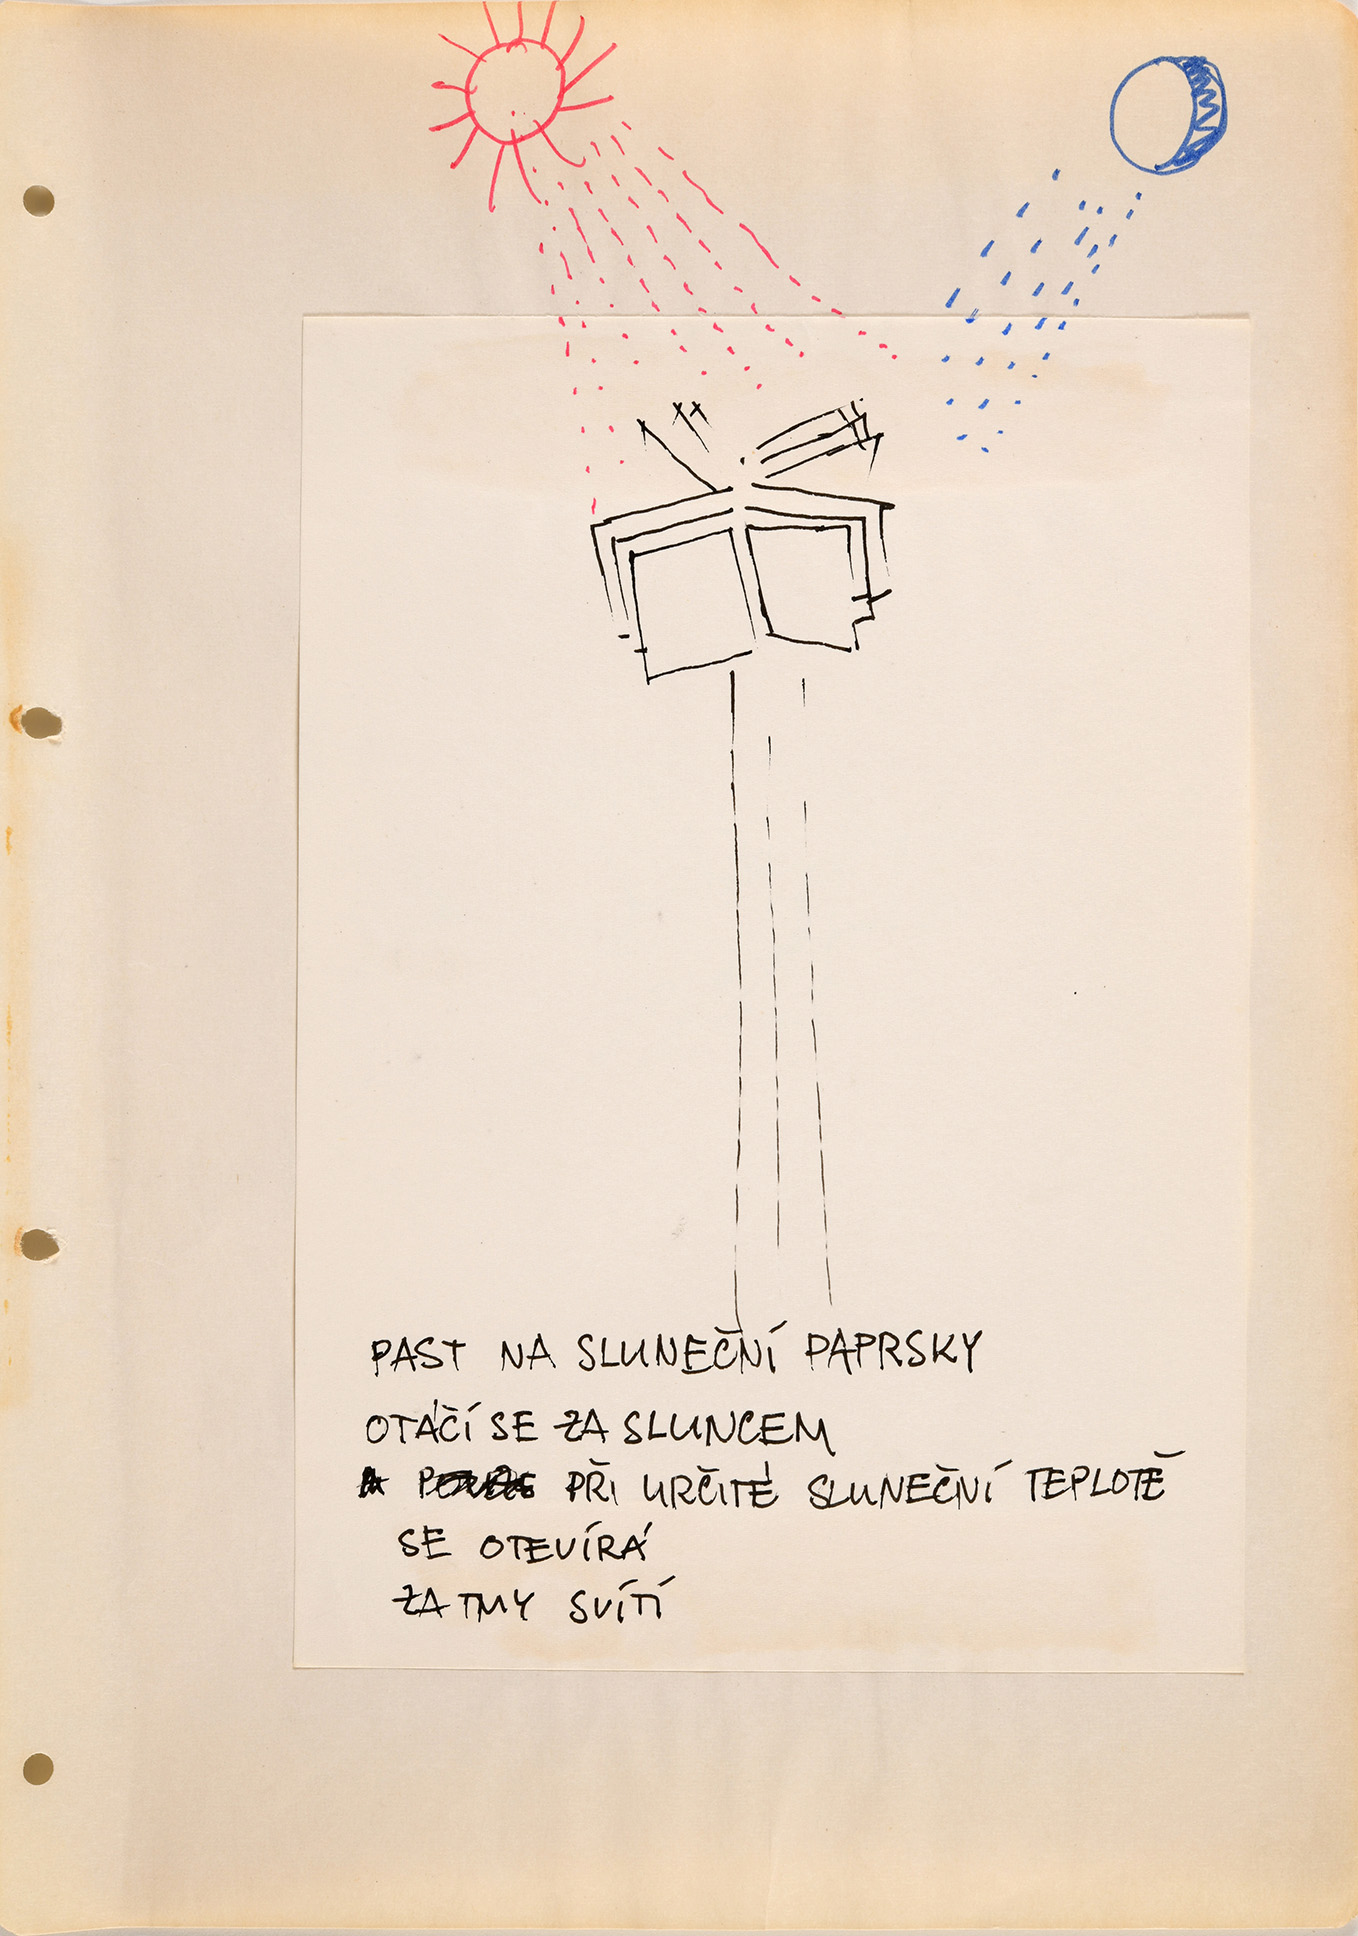 PAST NA SLUNEČNÍ PAPRSKY
OTÁČÍ SE ZA SLUNCEM
PŘI URČITÉ SLUNEČNÍ TEPLOTĚ
SE OTEVÍRÁ
ZA TMY SVÍTÍ